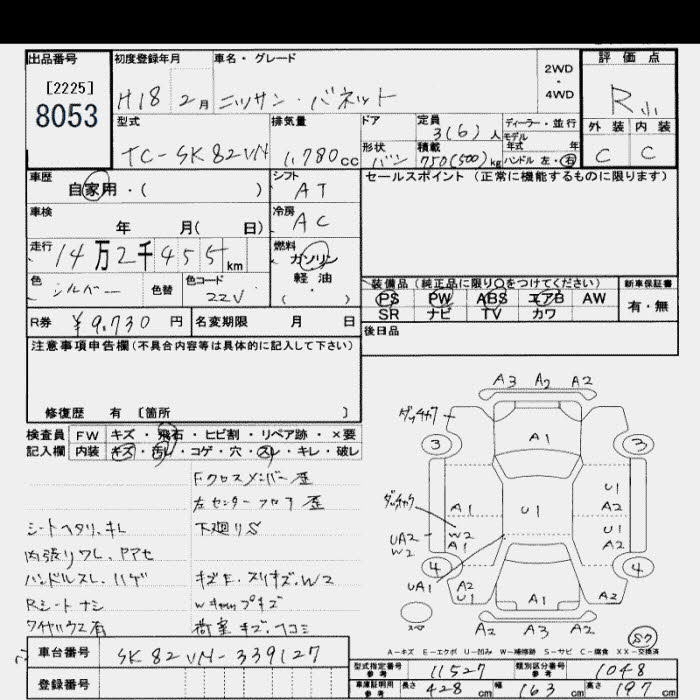 出品番号 初度登録年月 車名・グレード 2WD ・ 4WD 評価点
[2225] 8053 H18 2月 ニッサン・バネット R小
型式 排気量 ドア 定員 3(6)人 ディーラー・並行 外装 内装
モデル年式 年
TC-SK82VN 1,780cc 形状 バン 積載 750(500)kg ハンドル 左・右 C C
車歴 自家用・( ) シフト AT セールスポイント(正常に機能するものに限ります)
車検 年 月( 日) 冷房 AC
走行 14万2千455km 燃料 ガソリン 軽油 ( ・ )
色 シルバー 色替 色コード 22V
装備品(純正品に限り○をつけてください) 新車保証書
PS PW ABS エアB AW 有・無
SR ナビ TV カワ
R券 ¥9,730円 名変期限 月 日
後日品
注意事項申告欄(不具合内容等は具体的に記入して下さい)
修復歴 有 〔箇所 〕
検査員 FW キズ・飛石・ヒビ割・リペア跡・×要
記入欄 内装 キズ・汚レ・コゲ・穴・スレ・キレ・破レ
Fクロスメンバー歪
左センターフロア歪
シートヘタリ、キレ 下廻りS
内張りワレ、
ハンドルスレ、ハゲ キズE、スリキズ、W2
Rシートナシ
タイヤハウス有 荷室キズ、ヘコミ
A3 A2 A2
ダッチャク
3 A1 3
ダッチャク A1 U1 U1 A2
UA2 W2 W2 A1 U1 A2
4 4
UA1 A2 U1 A1 A2
スペア
A2 A3 A2
S7
A-キズ E-エクボ U-凹み W-補修跡 S-サビ C-腐食 XX-交換済
車台番号 SK82VN-339127
登録番号
型式指定番号 参考 11527 類別区分番号 参考 1048
車庫証明用 参考 長さ 428cm 幅 163cm 高さ 197cm